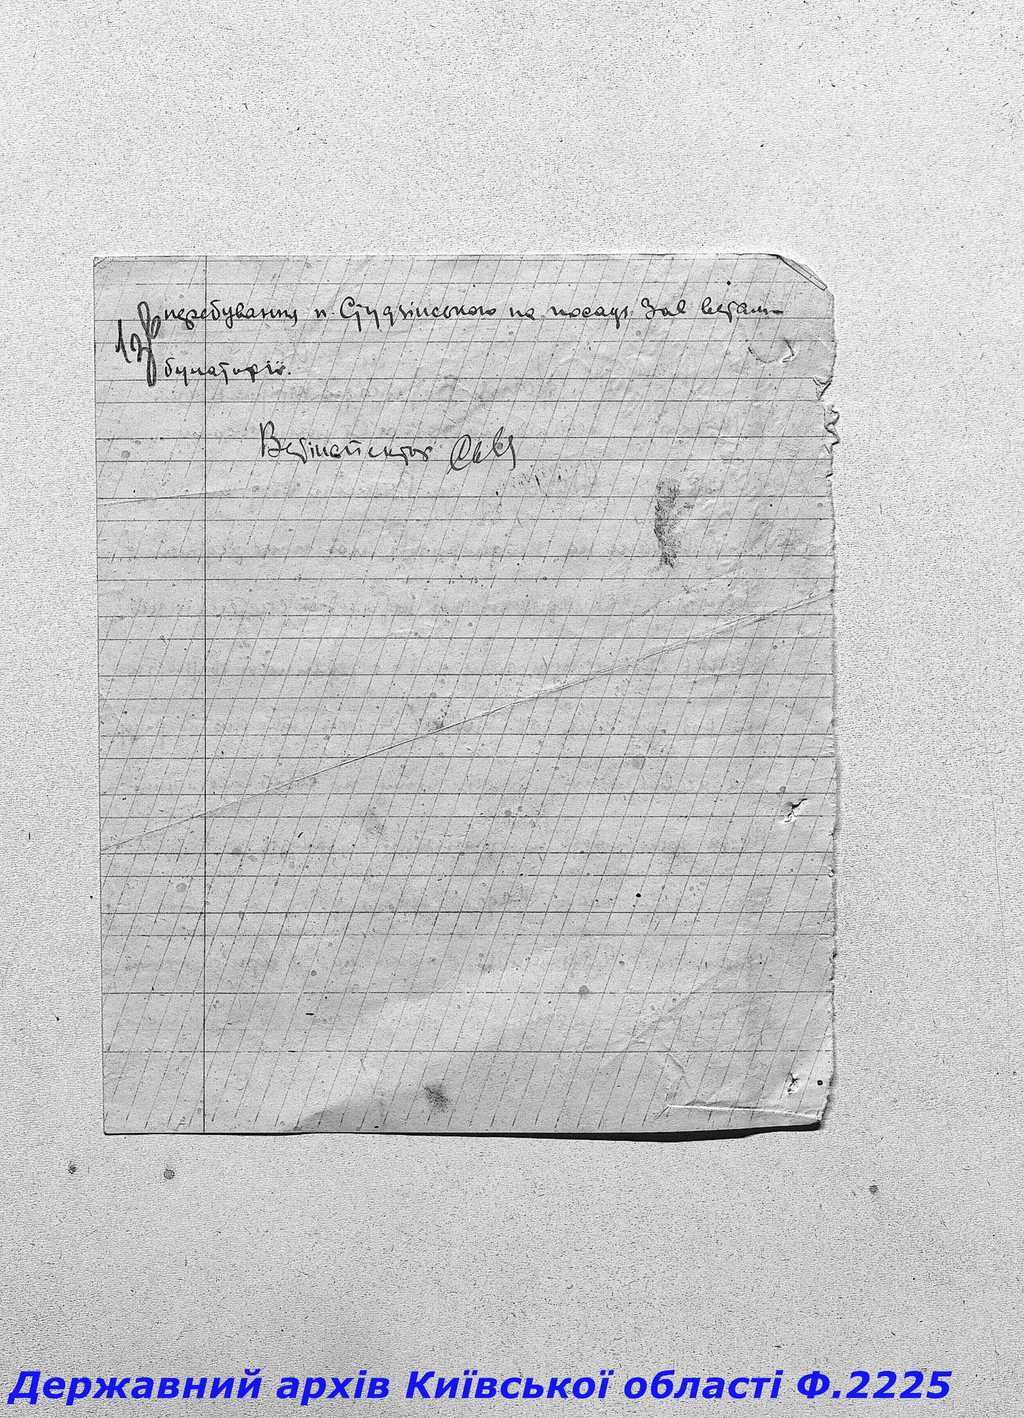 перебування п. Студзінського на посаді Зав ветам-
12 зв
булаторії.
Ветінспектор
Державний архів Київської області Ф.2225